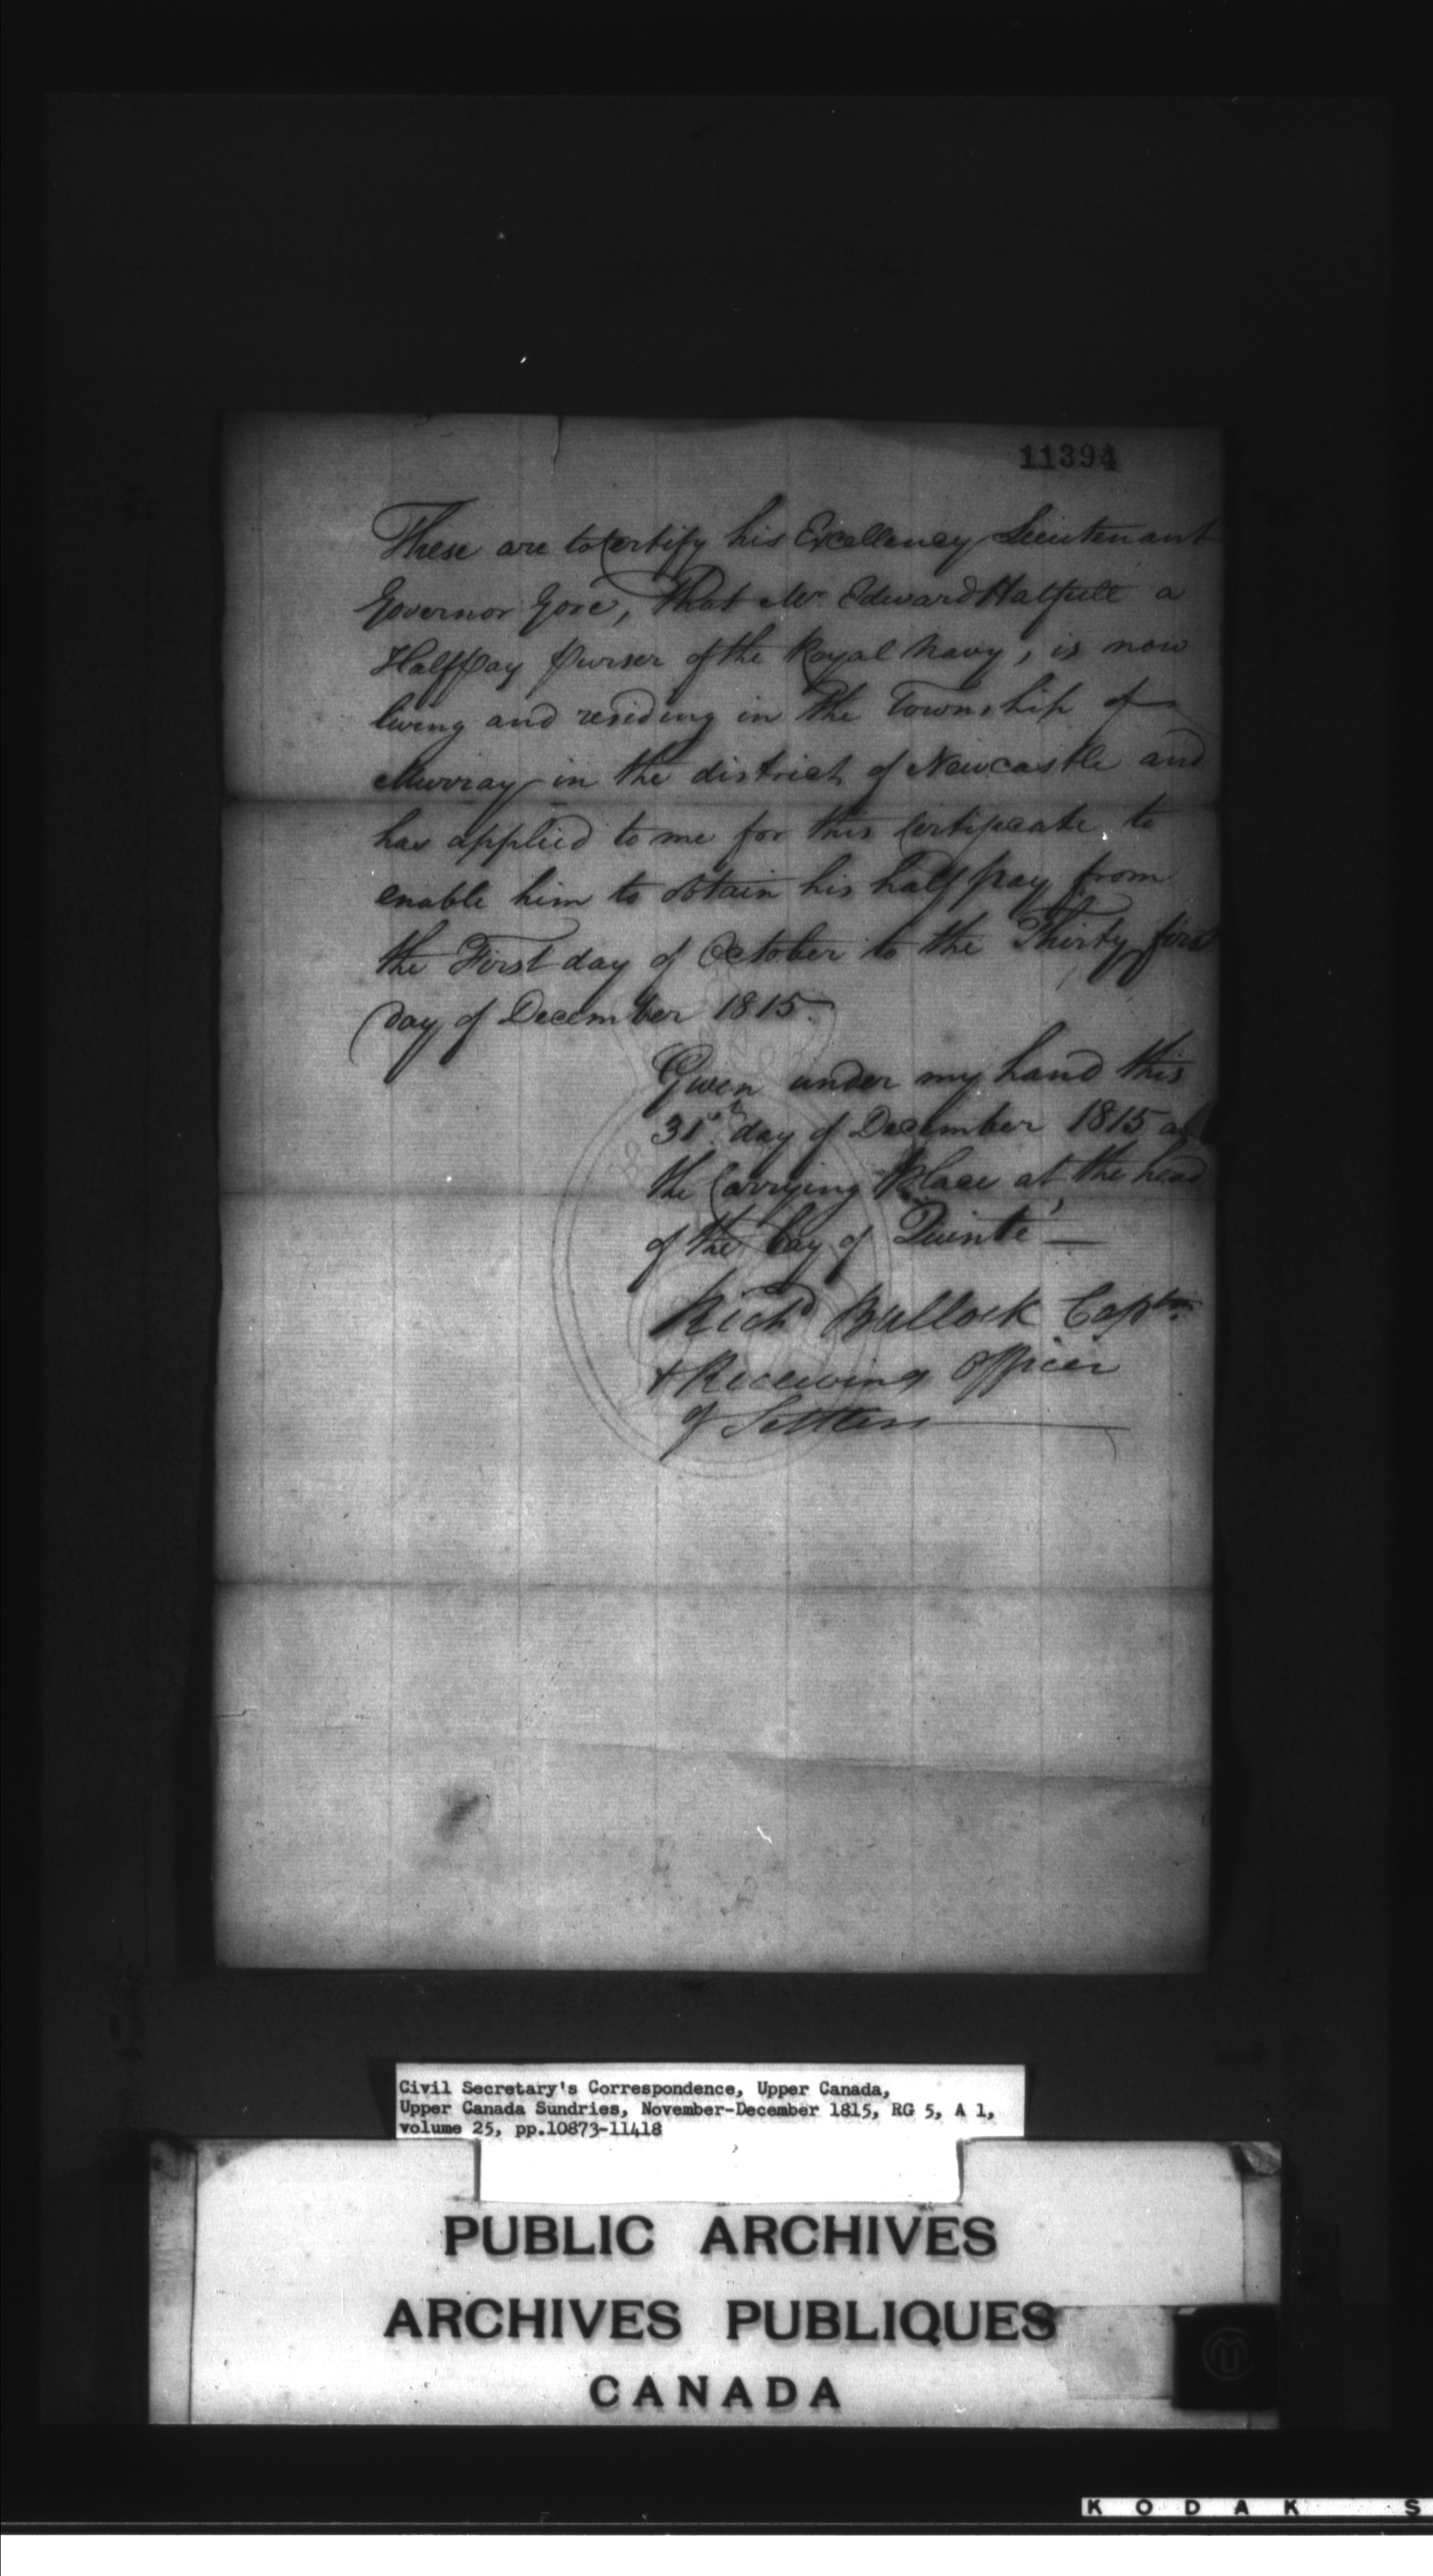 11394
These are to Certify his Excellency Lieutenant
Governor Gore, That Mr Edward Hatfull a
Half Pay Purser of the Royal Navy, is now
living and residing in the Township of
Murray in the district of Newcastle and
has applied to me for this Certificate, to
enable him to obtain his half pay from
the First day of October to the Thirty first
day of December 1815.
Given under my hand this
31st day of December 1815 at
the Carrying Place at the head
of the bay of Quinté —
Richd Bullock Captn.
& Receiving Officer
of Settlers
Civil Secretary's Correspondence, Upper Canada,
Upper Canada Sundries, November-December 1815, RG 5, A 1,
volume 25, pp.10873-11418
PUBLIC ARCHIVES
ARCHIVES PUBLIQUES
CANADA
KODAK S